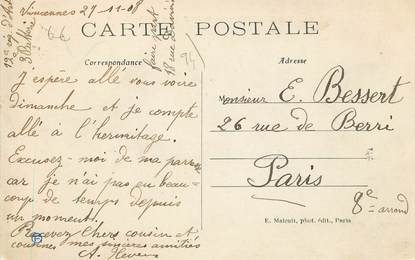 Vincennes 27-11-08
CARTE POSTALE
Correspondance
Adresse
J'espère allé vous voir
dimanche et je compte
allé à l'hermitage.
Excusez-moi de ma
car je n'ai pas eu beau-
coup de temps depuis
un moment!
Recevez chers cousin et
cousines mes sincères amitiés
A.
Monsieur E. Bessert
26 rue de Berri
Paris
8e arrond
E. Malcuit, phot. édit., Paris